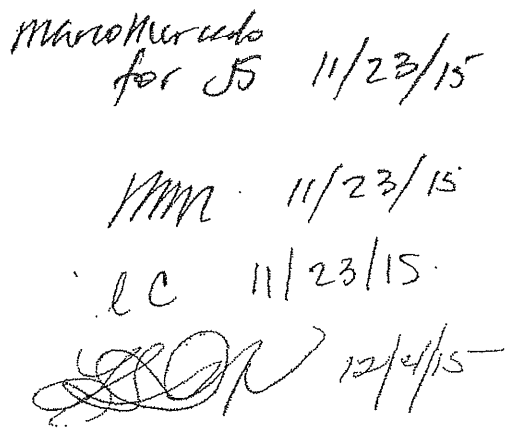 Marco Mercado
for JS 11/23/15
mm 11/23/15
lC 11/23/15.
12/4/15